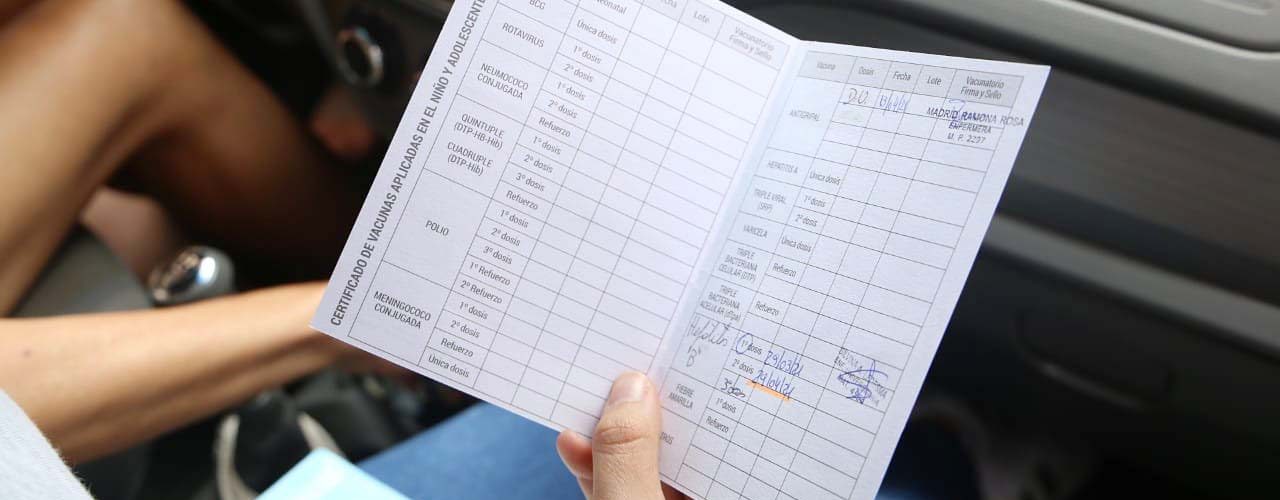 CERTIFICADO DE VACUNAS APLICADAS EN EL NIÑO Y ADOLESCENTE
BCG
Neonatal
Lote
Vacunatorio
Firma y Sello
Única dosis
ROTAVIRUS
1º dosis
2º dosis
NEUMOCOCO
CONJUGADA
1º dosis
2º dosis
Refuerzo
QUINTUPLE
(DTP-HB-Hib)
CUADRUPLE
(DTP-Hib)
1º dosis
2º dosis
3º dosis
Refuerzo
POLIO
1º dosis
2º dosis
3º dosis
1º Refuerzo
2º Refuerzo
MENINGOCOCO
CONJUGADA
1º dosis
2º dosis
Refuerzo
Única dosis
Vacuna
Dosis
Fecha
Lote
Vacunatorio
Firma y Sello
ANTIGRIPAL
D.U.
MADRID RAMONA ROSA
ENFERMERA
M. P. 2297
HEPATITIS A
Única dosis
TRIPLE VIRAL
(SRP)
1º dosis
2º dosis
VARICELA
Única dosis
TRIPLE
BACTERIANA
CELULAR (DTP)
Refuerzo
TRIPLE
BACTERIANA
ACELULAR (dTpa)
Refuerzo
Hepatitis
"B"
1º dosis 29/03/21
2º dosis 29/04/21
FIEBRE
AMARILLA
1º dosis
Refuerzo